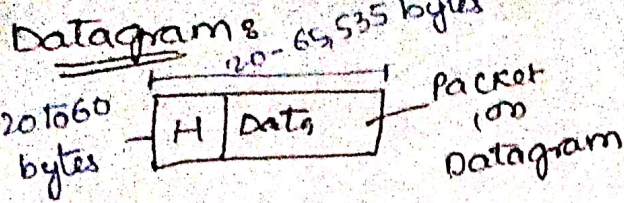 Datagram:
20 - 65,535 bytes
20 to 60
bytes
H Data
Packet
(or)
Datagram